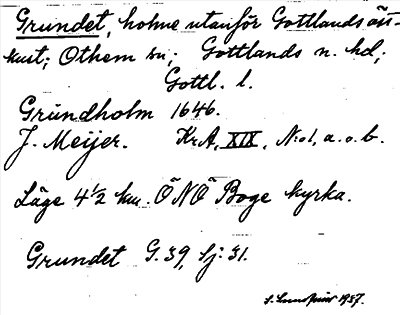 Grundet, holme utanför Gottlands öst-
kust; Othem sn; Gottlands n. hd;
Gottl. l.
Grundholm 1646.
J. Meijer. Kr.A, XIX, N:o1, a. o. b.
Läge 4 ½ km. ÖNÖ Boge kyrka.
Grundet G. 39, Sj: 31.
1937.